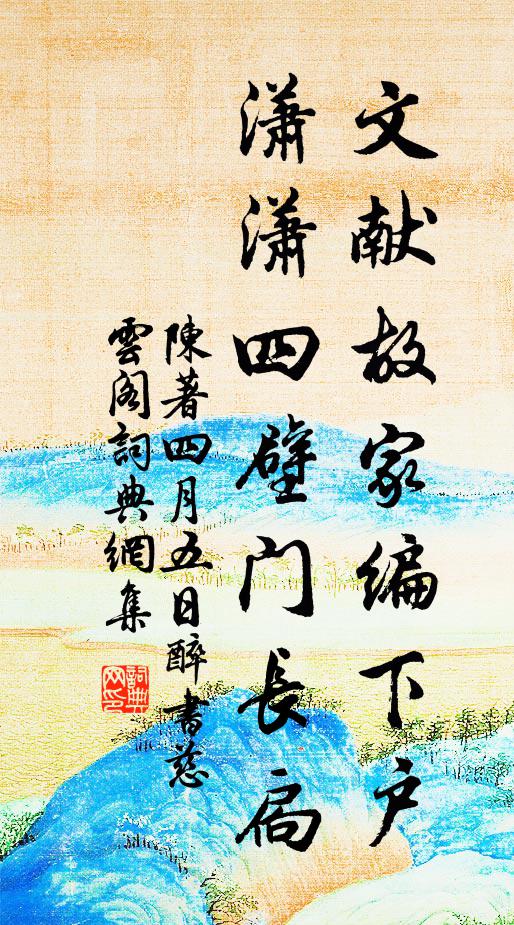 文献故家编下户
瀟瀟四壁门長扃
陳著四月五日醉書慈
雲阁詞典網集
詞典
网印